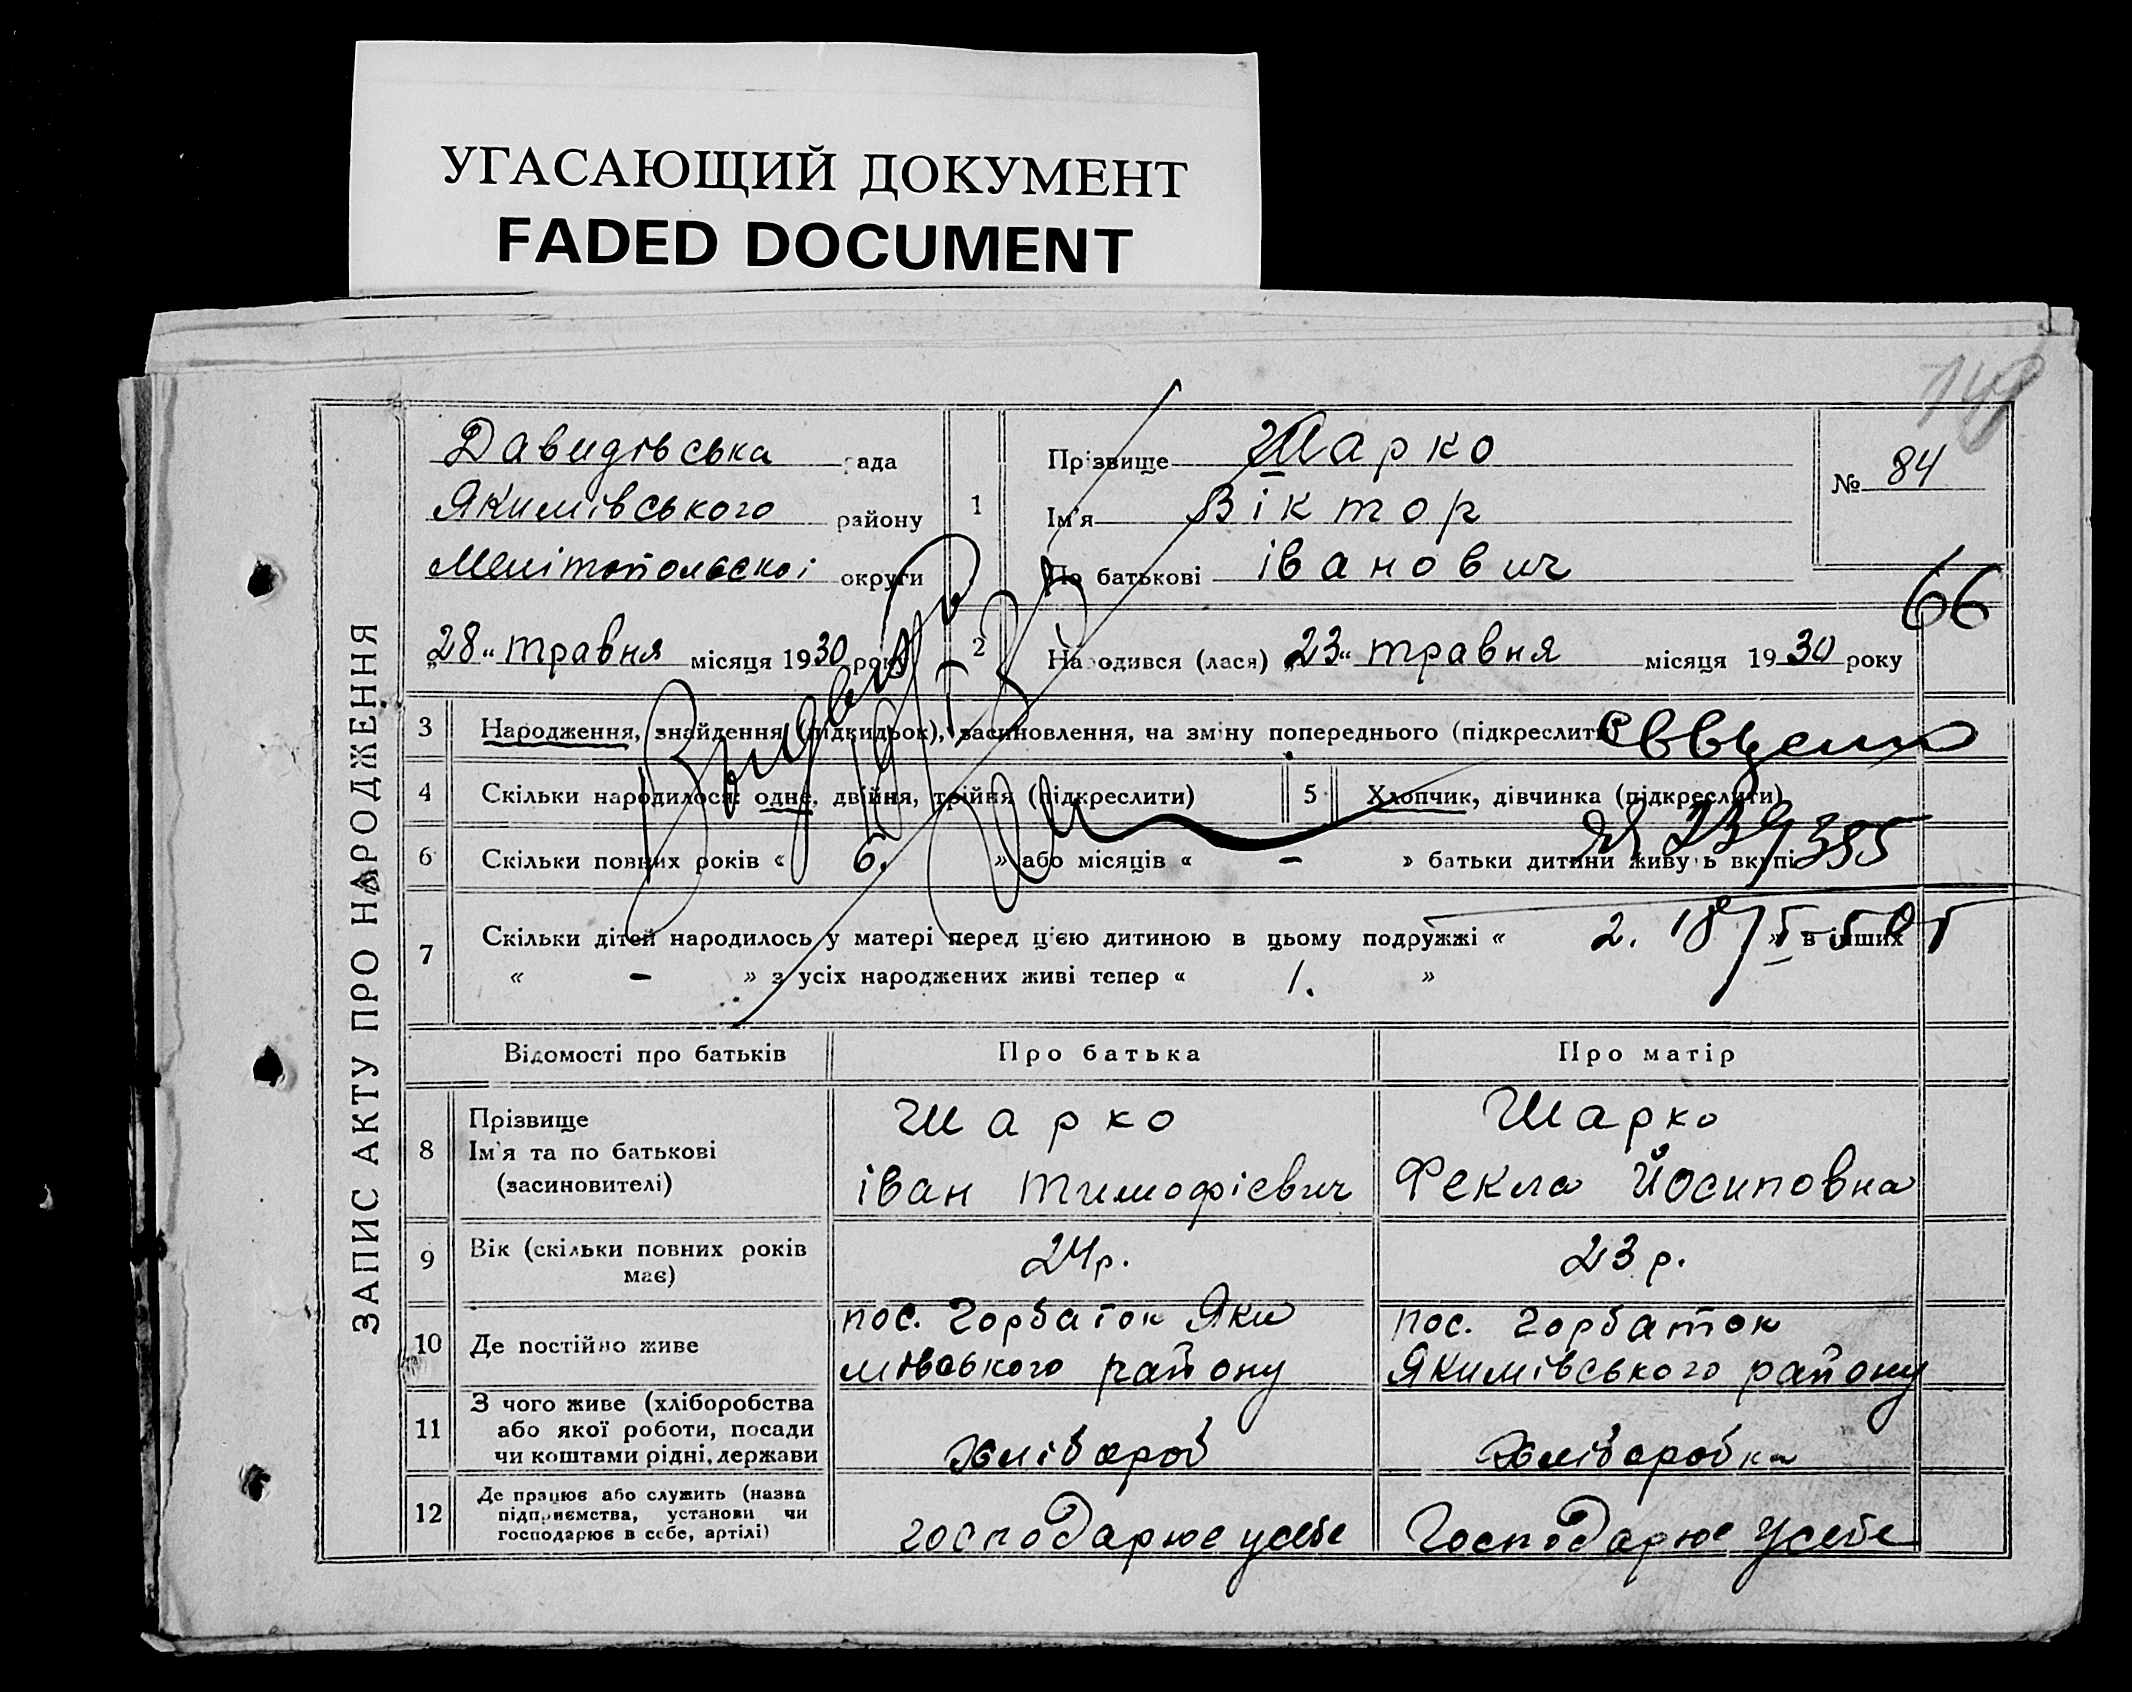 УГАСАЮЩИЙ ДОКУМЕНТ
FADED DOCUMENT
149
ЗАПИС АКТУ ПРО НАРОДЖЕННЯ
Давидівська рада
Якимівського району
Мелітопольської округи
„28“ травня місяця 1930 року
1 Прізвище Шарко
Ім'я Віктор
По батькові іванович
№ 84
66
2 Народився (лася) „23“ травня місяця 1930 року
3 Народження, знайдення (підкидьок), засиновлення, на зміну попереднього (підкреслити)
4 Скільки народилося: одне, двійня, трійня (підкреслити) 5 Хлопчик, дівчинка (підкреслити)
6 Скільки повних років « 6. » або місяців « – » батьки дитини живуть вкупі
7 Скільки дітей народилось у матері перед цією дитиною в цьому подружжі « 2. » в інших
« – » з усіх народжених живі тепер « 1. »
Відомості про батьків Про батька Про матір
8 Прізвище
Ім'я та по батькові
(засиновителі)
Шарко
іван тимофієвич
Шарко
Фекла Йосиповна
9 Вік (скільки повних років
має)
24 р.
23 р.
10 Де постійно живе
пос. Горбаток Яки
мівського району
пос. Горбаток
Якимівського району
11 З чого живе (хліборобства
або якої роботи, посади
чи коштами рідні, держави
хлібороб
хліборобка
12 Де працює або служить (назва
підприємства, установи чи
господарює в себе, артілі)
господарює усебе
Господарює усебе